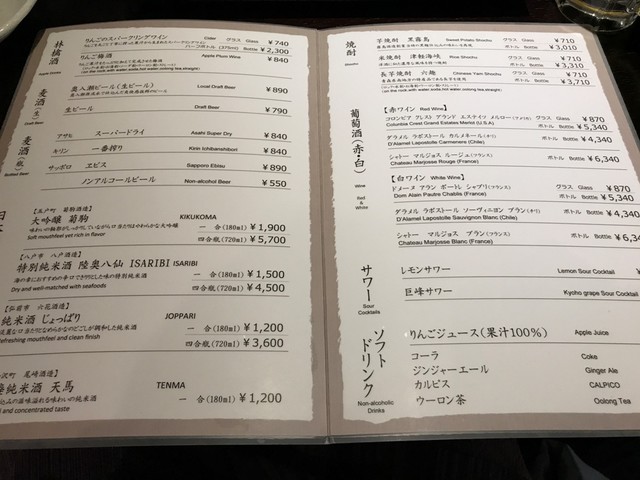 林檎酒
Apple Drinks
りんごのスパークリングワイン Cider グラス Glass ¥740
ハーフボトル (375ml) ボトル ¥2,300
りんご梅酒 Apple Plum Wine ¥840
(on the rock with water,soda,hot water,oolong tea,straight)
麦酒(生)
Draft Beer
奥入瀬ビール(生ビール) Local Draft Beer グラス Glass ¥890
生ビール Draft Beer ¥790
麦酒(瓶)
Bottled Beer
アサヒ スーパードライ Asahi Super Dry ¥840
キリン 一番搾り Kirin Ichibanshibori ¥840
サッポロ ヱビス Sapporo Ebisu ¥890
ノンアルコールビール Non-alcohol Beer ¥550
日本
【五戸町 菊駒酒造】
大吟醸 菊駒 KIKUKOMA 一 合(180ml) ¥1,900
Soft mouthfeel yet rich in flavor 四合瓶(720ml) ¥5,700
【八戸市 八戸酒造】
特別純米酒 陸奥八仙 ISARIBI ISARIBI 一 合(180ml) ¥1,500
海の幸におすすめの辛口できりとした味の特別純米酒
Dry and well-matched with seafoods 四合瓶(720ml) ¥4,500
【弘前市 六花酒造】
純米酒 じょっぱり JOPPARI 一 合(180ml) ¥1,200
refreshing mouthfeel and clean finish 四合瓶(720ml) ¥3,600
沢町 尾崎酒造】
純米酒 天馬 TENMA 一 合(180ml) ¥1,200
and concentrated taste
焼酎
Shochu
芋焼酎 黒霧島 Sweet Potato Shochu グラス Glass ¥710
ボトル Bottle ¥3,010
米焼酎 津軽海峡 Rice Shochu グラス Glass ¥710
ボトル Bottle ¥3,310
長芋焼酎 六趣 Chinese Yam Shochu グラス Glass ¥710
ボトル Bottle ¥3,710
(on the rock with water,soda,hot water,oolong tea,straight)
葡萄酒(赤・白)
Wine
Red & White
【赤ワイン Red Wine】
コロンビア クレスト グランド エステイツ メルロー(アメリカ) グラス Glass ¥870
Columbia Crest Grand Estates Merlot (U.S.A) ボトル Bottle ¥5,340
ダラメル ラポストール カルメネール(チリ)
D'Alamel Lapostolle Carmenere (Chile) ボトル Bottle ¥4,340
シャトー マルジョス ルージュ(フランス)
Chateau Marjosse Rouge (France) ボトル Bottle ¥6,340
【白ワイン White Wine】
ドメーヌ アラン ポートレ シャブリ(フランス) グラス Glass ¥870
Dom Alain Pautre Chablis (France) ボトル Bottle ¥5,340
ダラメル ラポストール ソーヴィニヨン ブラン(チリ)
D'Alamel Lapostolle Sauvignon Blanc (Chile) ボトル Bottle ¥4,34
シャトー マルジョス ブラン(フランス)
Chateau Marjosse Blanc (France) ボトル Bottle ¥6,34
サワー
Sour Cocktails
レモンサワー Lemon Sour Cocktail
巨峰サワー Kyoho grape Sour Cocktail
ソフトドリンク
Non-alcoholic Drinks
りんごジュース(果汁100%) Apple Juice
コーラ Coke
ジンジャーエール Ginger Ale
カルピス CALPICO
ウーロン茶 Oolong Tea